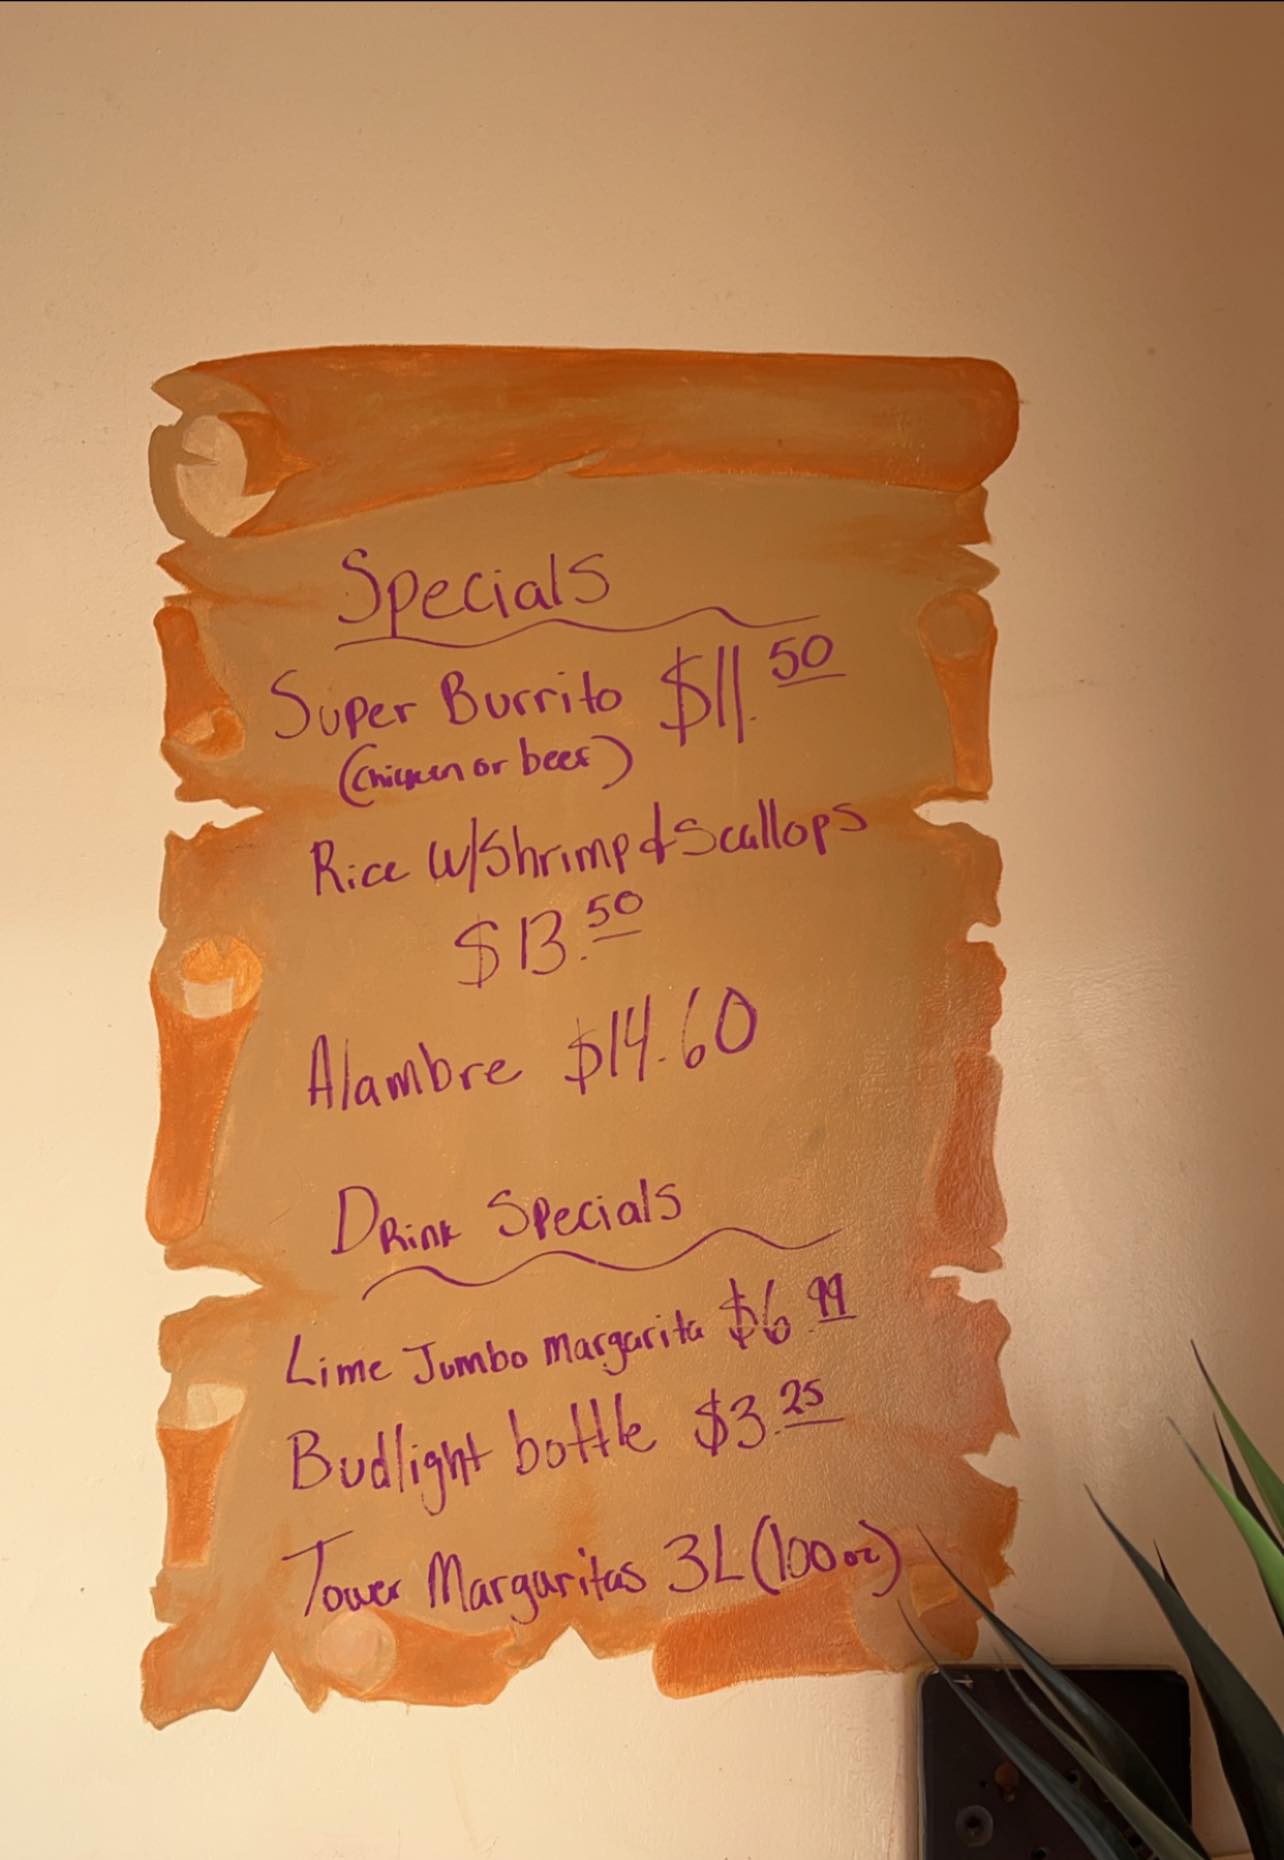 Specials
Super Burrito $11.50
(Chicken or beef)
Rice w/Shrimp & Scallops
$13.50
Alambre $14.60
Drink Specials
Lime Jumbo Margarita $6.99
Budlight bottle $3.25
Tower Margaritas 3L (100 oz)